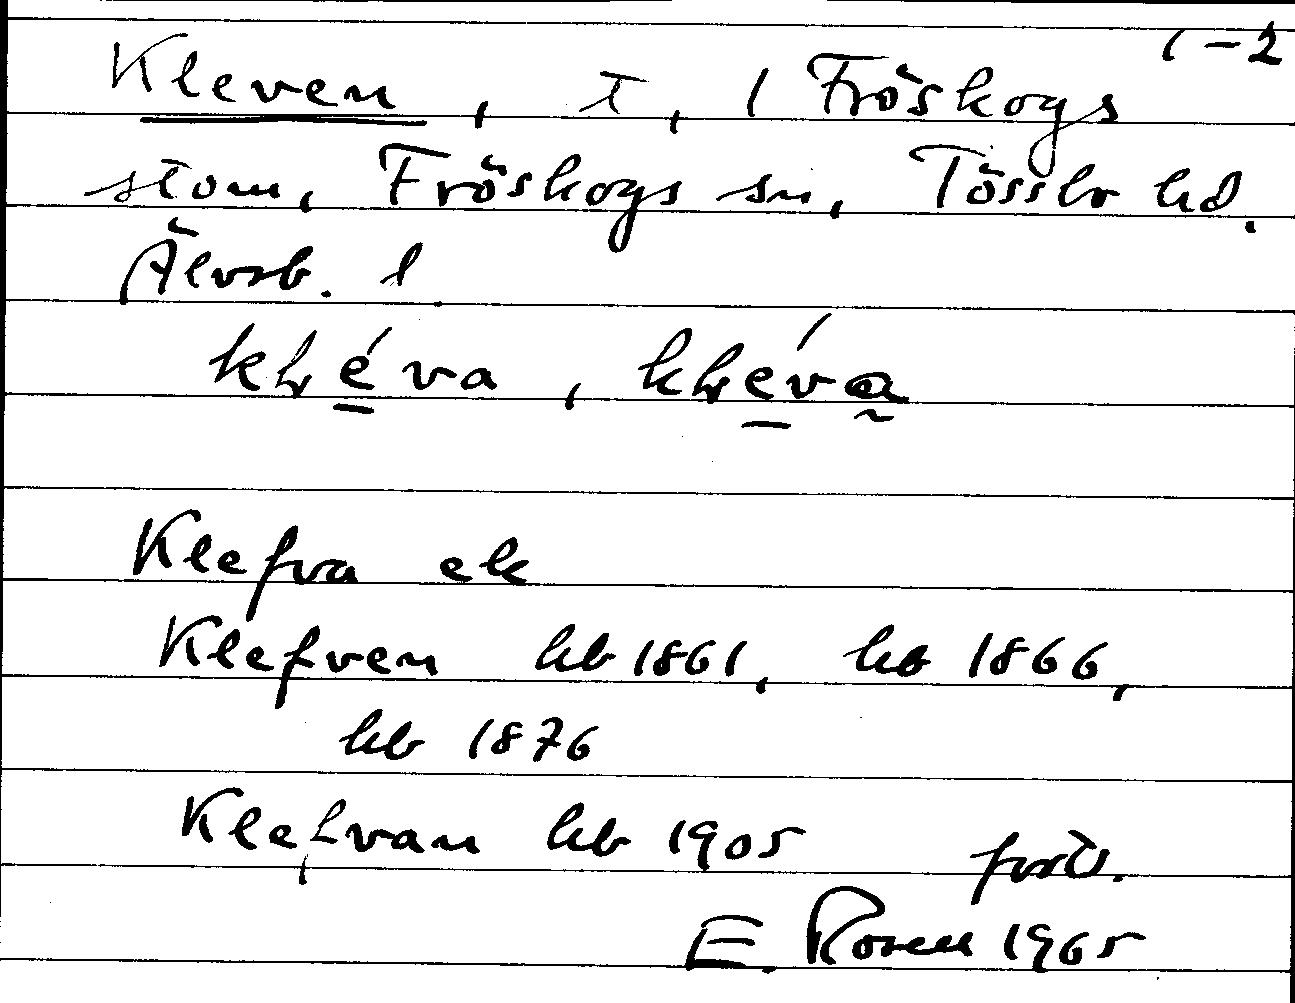 1-2
Kleven, t, i Fröskogs
stom, Fröskogs sn, Tössbo hd.
Älvsb. l
Klefva ek
Klefven hb 1861, hb 1866,
hb 1876
Klefvan hb 1905 forts.
E. Rosell 1965